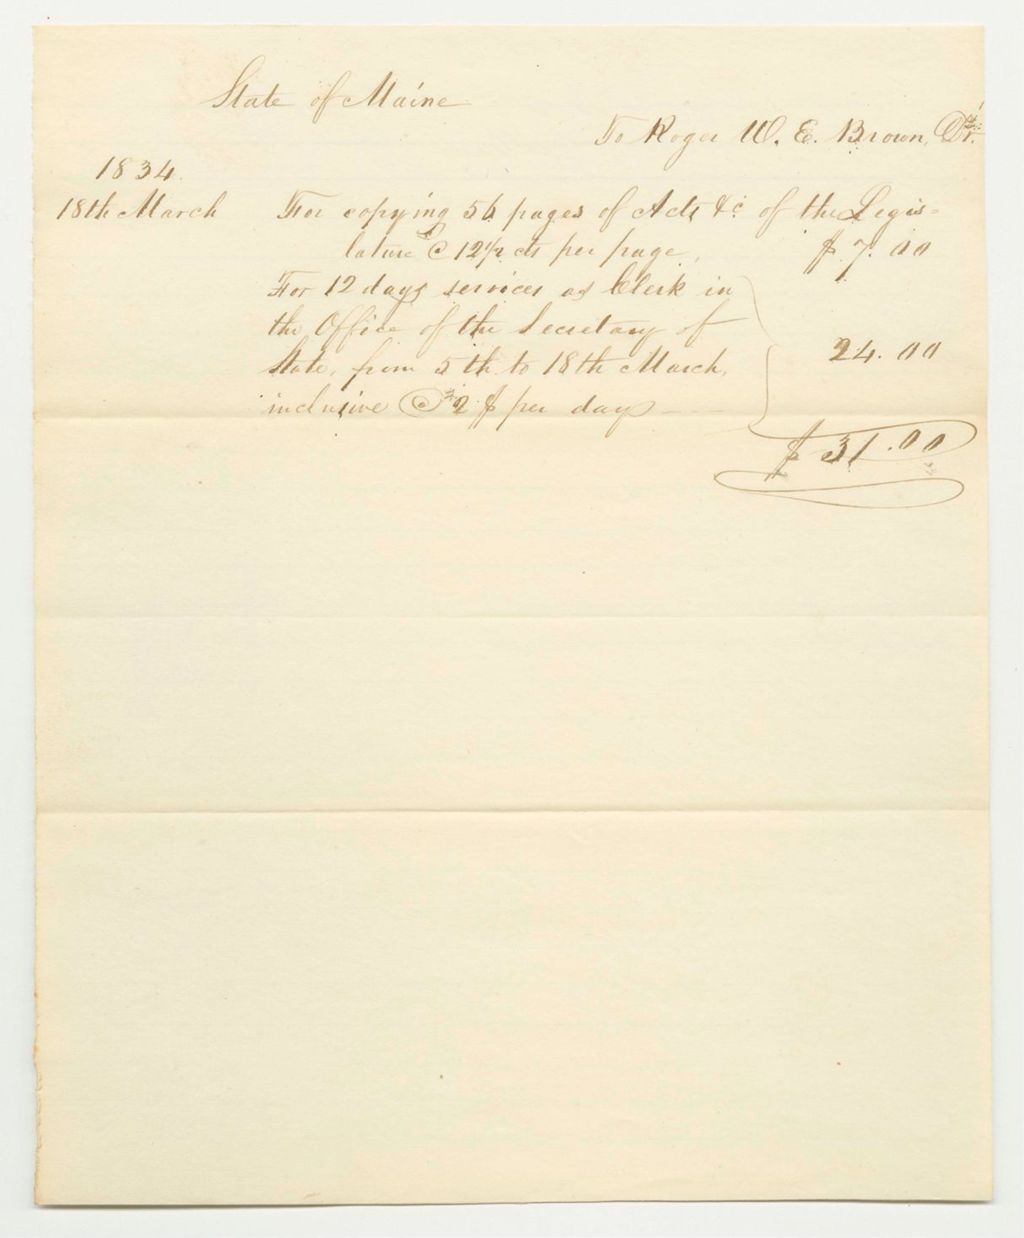 State of Maine
To Roger W. E. Brown, Dr.
1834
18th March For copying 56 pages of Acts &c of the Legis=
lature @ 12 1/2 cts per page, $ 7.00
For 12 days services as Clerk in
the Office of the Secretary of
State, from 5th to 18th March,
inclusive @ 2 $ per day 24.00
$ 31.00